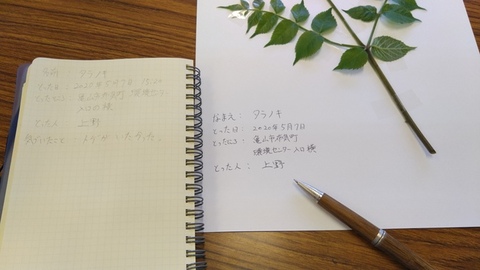 名前： タラノキ
とった日： 2020年5月7日
とったところ：亀山市本丸町 環境センター
入口横
とった人： 上野
気づいたこと：トゲが いたかった。
なまえ： タラノキ
とった日： 2020年5月7日
とったところ：亀山市本丸町
環境センター入口横
とった人： 上野